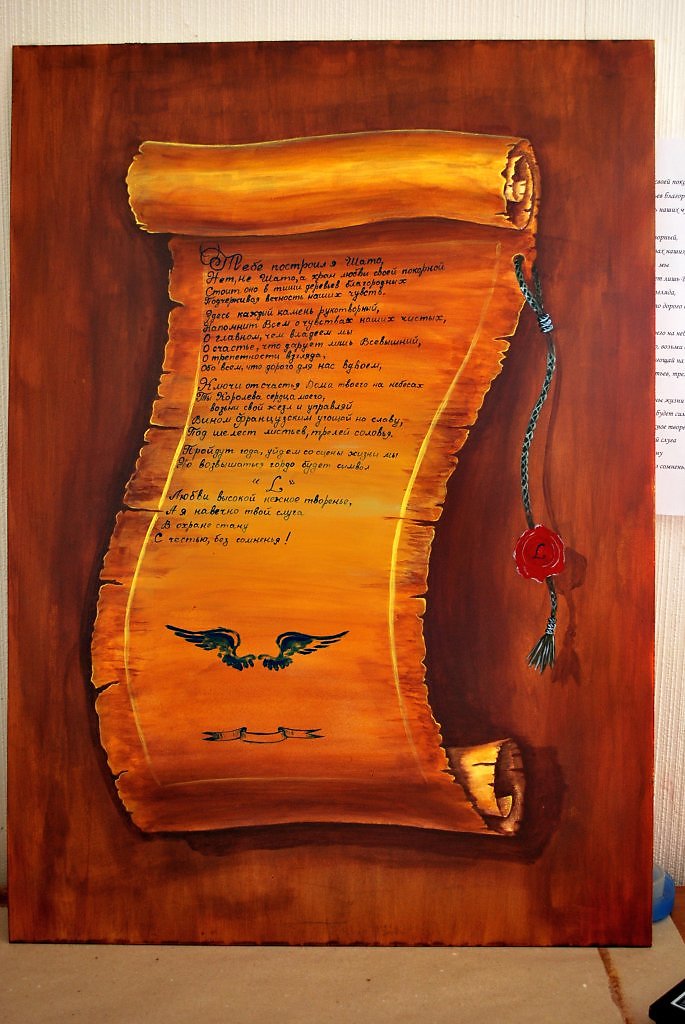 Тебе построил я Шато,
Нет, не Шато, а храм любви своей покорной
Стоит оно в тиши деревьев благородных
Подчеркивая вечность наших чувств.
Здесь каждый камень рукотворный,
Напомнит Всем о чувствах наших чистых,
О главном, чем владеем мы
О счастье, что дарует лишь Всевышний,
О трепетности взгляда,
Обо всем, что дорого для нас вдвоем,
Ключи от счастья Дома твоего на небесах
Ты Королева сердца моего,
возьми свой жезл и управляй
Вином Французским угощай на славу,
Под шелест листьев, трелей соловья.
Пройдут года, уйдем со сцены жизни мы
Но возвышаться гордо будет символ
"L"
Любви высокой нежное творенье,
А я навечно твой слуга
В охране стану
С честью, без сомненья!
L
своей пока
наших чу
рный,
ах наших
мы
ет лишь
гляда,
о дорого
его на неб
возьми
ощай на
тьев, тре
ны жизни
будет сим
ное творе
й слуга
ну
з сомнень